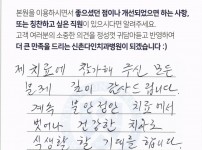 본원을 이용하시면서 좋으셨던 점이나 개선되었으면 하는 사항,
또는 칭찬하고 싶은 직원이 있으시다면 알려주세요.
고객 여러분의 소중한 의견을 정성껏 귀담아듣고 반영하여
더 큰 만족을 드리는 신촌다인치과병원이 되겠습니다 :)
제 치료에 참가해 주신 모든
분께 깊이 감사드립니다.
계속 불안정안 치료에서
벗어나 건강한 치아로
식생활 할 기대를 합니다.